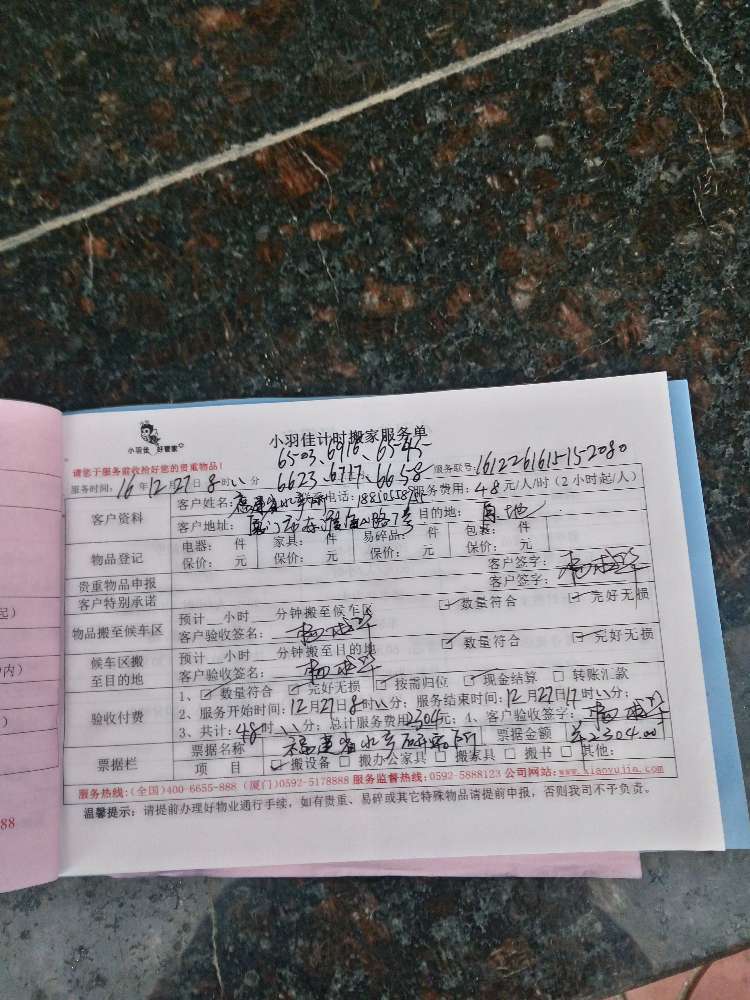 小羽佳 好管家
小羽佳计时搬家服务单
6503、6916、6545
请您于服务前收拾好您的贵重物品！
6623、6717、6658
服务联号：161226161515-2080
服务时间：16年12月27日8时00分
客户资料
客户姓名：福建省水产 联系电话： 服务费用：48元/人/时（2小时起/人）
客户地址：厦门市海山路7号 目的地：原地
物品登记
电器： 件 家具： 件 易碎品： 件 包装： 件
保价： 元 保价： 元 保价： 元 保价： 元
贵重物品申报 客户签字：
客户特别承诺 客户签字：
物品搬至候车区
预计__小时__分钟搬至候车区 数量符合 完好无损
客户验收签名：
候车区搬至目的地
预计__小时__分钟搬至目的地 数量符合 完好无损
客户验收签名：
验收付费
1、数量符合 完好无损 按需归位 现金结算 转账汇款
2、服务开始时间：12月27日8时00分；服务结束时间：12月27日17时00分；
3、共计：48时00分；总计服务费用2304元；4、客户验收签字：
票据栏
票据名称 福建省水产研究所 票据金额 2304.00
项 目 搬设备 搬办公家具 搬家具 搬书 其他：
服务热线：(全国)400-6655-888 (厦门)0592-5178888 服务监督热线：0592-5888123 公司网站：www.xiaoyujia.com
温馨提示：请提前办理好物业通行手续，如有贵重、易碎或其它特殊物品请提前申报，否则我司不予负责。
88